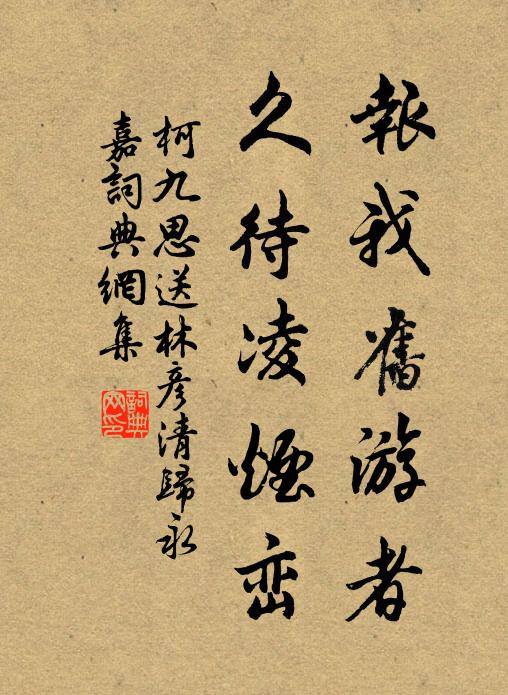 報我舊游者
久待凌煙峦
柯九思送林彥清歸永
嘉詞典網集
詞典网印